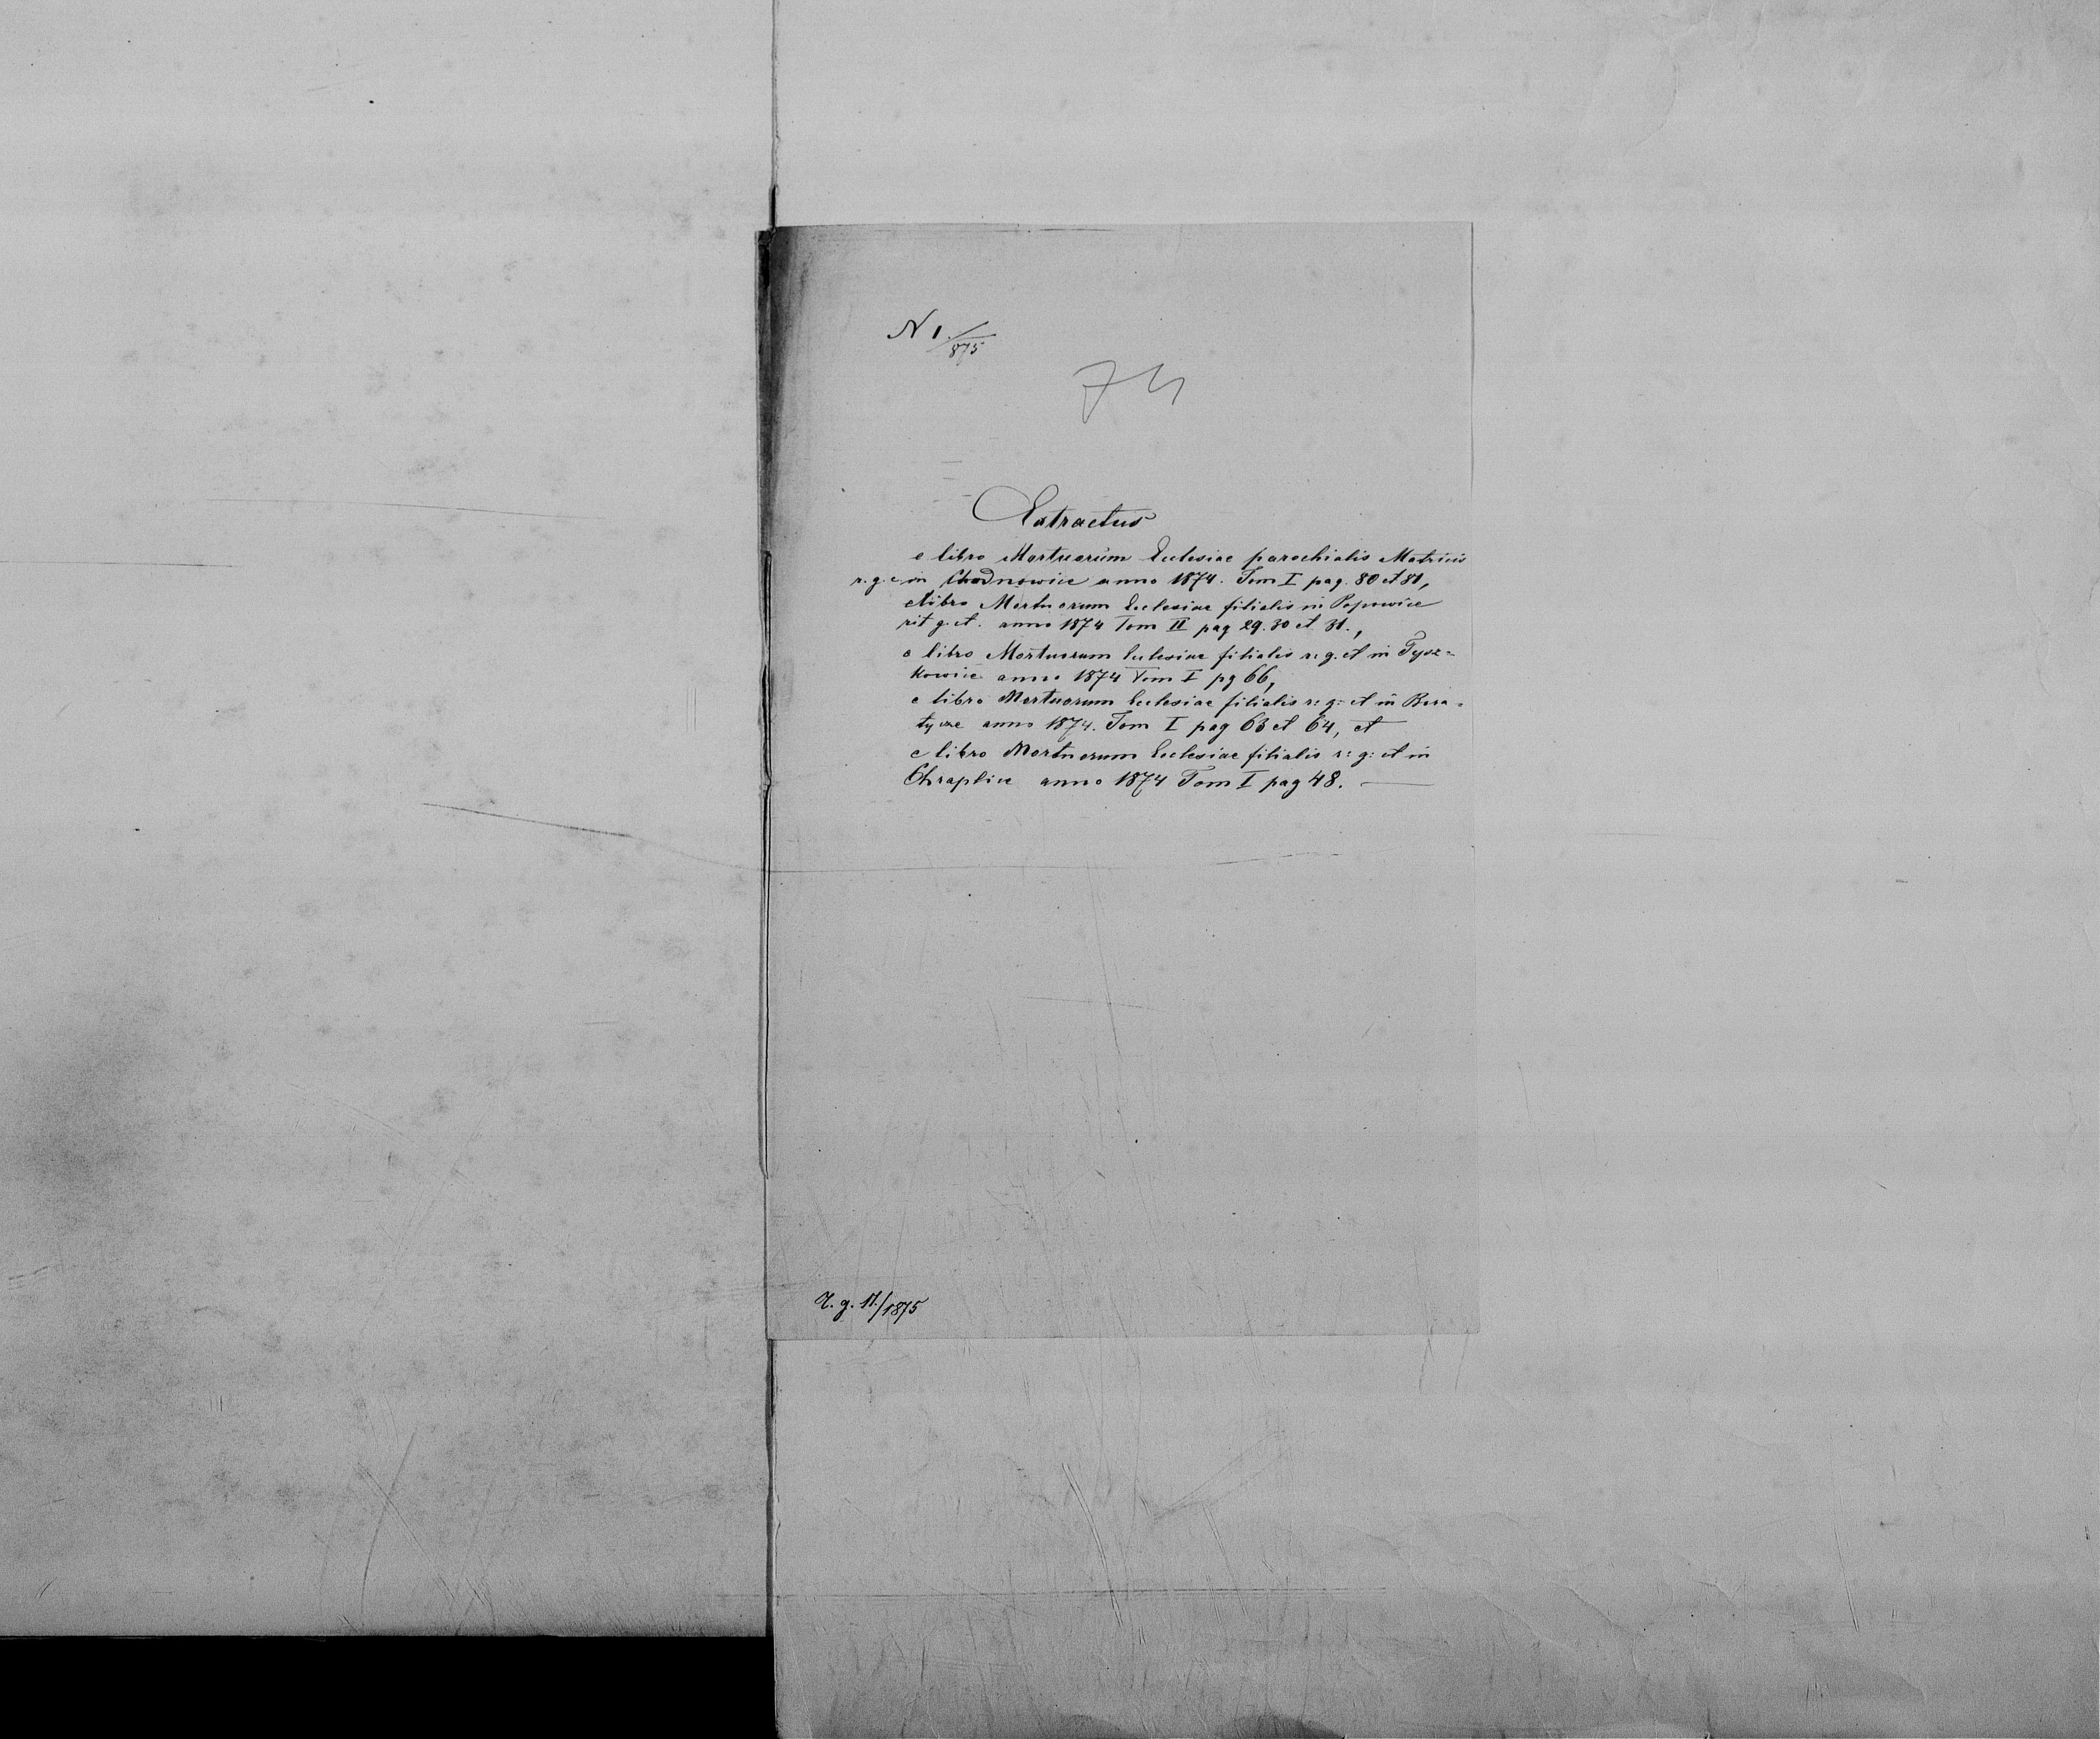 N 1./875
74
Extractus
e libro Mortuorum Ecclesiae parochialis Matricis
r. g. c in Chodnowice anno 1874. Tom I pag. 80 et 81,
e libro Mortuorum Ecclesiae filialis in Popowice
rit g. ct. anno 1874 Tom II pag 29. 30 et 31.,
e libro Mortuorum Ecclesiae filialis r: g. ct in Tysz=
kowice anno 1874 Tom I pg 66,
e libro Mortuorum Ecclesiae filialis r: g: ct in
tycze anno 1874. Tom I pag 63 et 64, et
e libro Mortuorum Ecclesiae filialis r: g: ct in
Chraplice anno 1874 Tom I pag 48. —
r. g. 11./1875